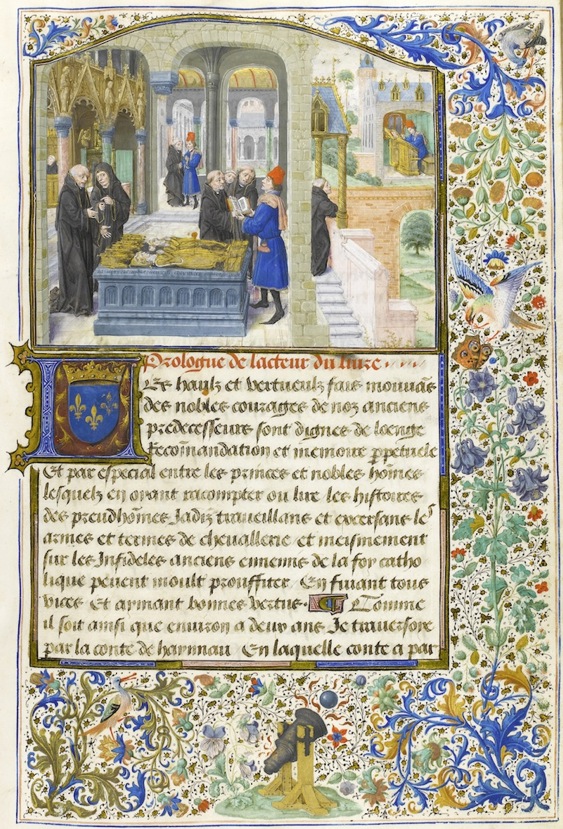 Prologue de lacteur du liure
LEs haulz et vertueulz fais mouuans
des nobles courages de noz anciens
predecesseurs sont dignes de loenge
Recomandation et memoire ppetuele
Et par especial entre les princes et nobles hõmes
lesquelz en oyant racompter ou lire les histoires
des preudhõmes Jadiz traueillans et excersans les
armes et termes de cheuallerie et meismement
sur les Infideles anciens ennemis de la foy catho
lique peuent moult prouffiter En fuiant tous
vices Et aymant bonnes vertus. Comme
il soit ainsi que enuiron a deux ans Je trauersoie
par la conte de haynnau En laquelle conte a par